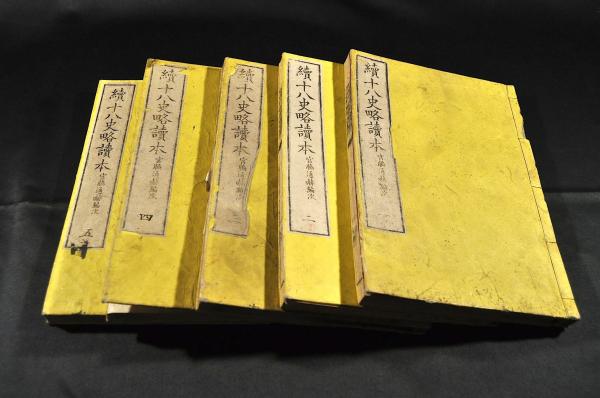 續十八史略讀本 宮脇通赫編次 一
續十八史略讀本 宮脇通赫編次 二
續十八史略讀本 宮脇通赫編次 三
續十八史略讀本 宮脇通赫編次 四
續十八史略讀本 宮脇通赫編次 五